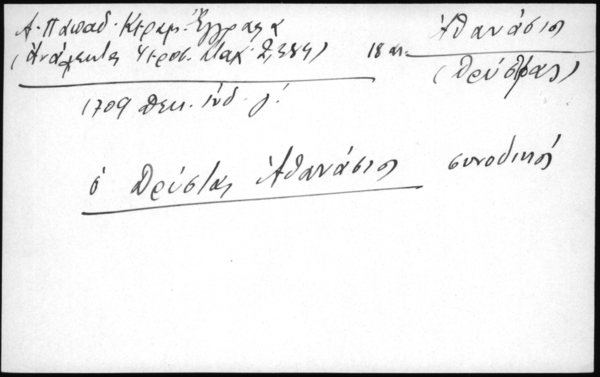 Α. Παπαδ. Κεραμ. Ἔγγραφα
(Ἀνάλεκτα Ἱεροσ. Σταχ. 2, 384) 18 αι.
Ἀθανάσιος
(Δρύστρας)
1709 Δεκ. ἰνδ. γ΄.
ὁ Δρύστας Ἀθανάσιος συνοδικός